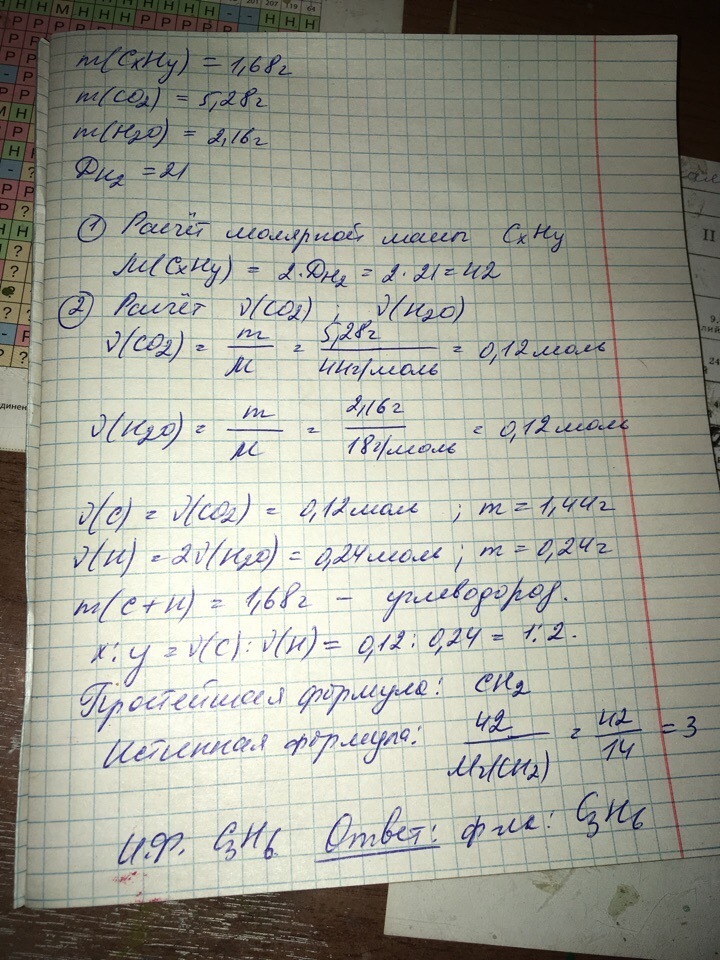 201 207 119 64
- - Н Н Н
m(CxHy) = 1,68г
m(CO2) = 5,28г
m(H2O) = 2,16г
ДH2 = 21
① Расчёт молярной массы CxHy
M(CxHy) = 2·ДH2 = 2·21=42
② Расчёт ν(CO2) ; ν(H2O)
ν(CO2) = m/M = 5,28г/44г/моль = 0,12моль
ν(H2O) = m/M = 2,16г/18г/моль = 0,12моль
ν(C) = ν(CO2) = 0,12мол ; m = 1,44г
ν(H) = 2ν(H2O) = 0,24мол ; m = 0,24г
m(C+H) = 1,68г – углеводород.
x:y = ν(C):ν(H) = 0,12:0,24 = 1:2.
Простейшая формула: CH2
Истинная формула: 42/Mr(CH2) = 42/14 = 3
И.Ф. C3H6 Ответ: ф-ла: C3H6